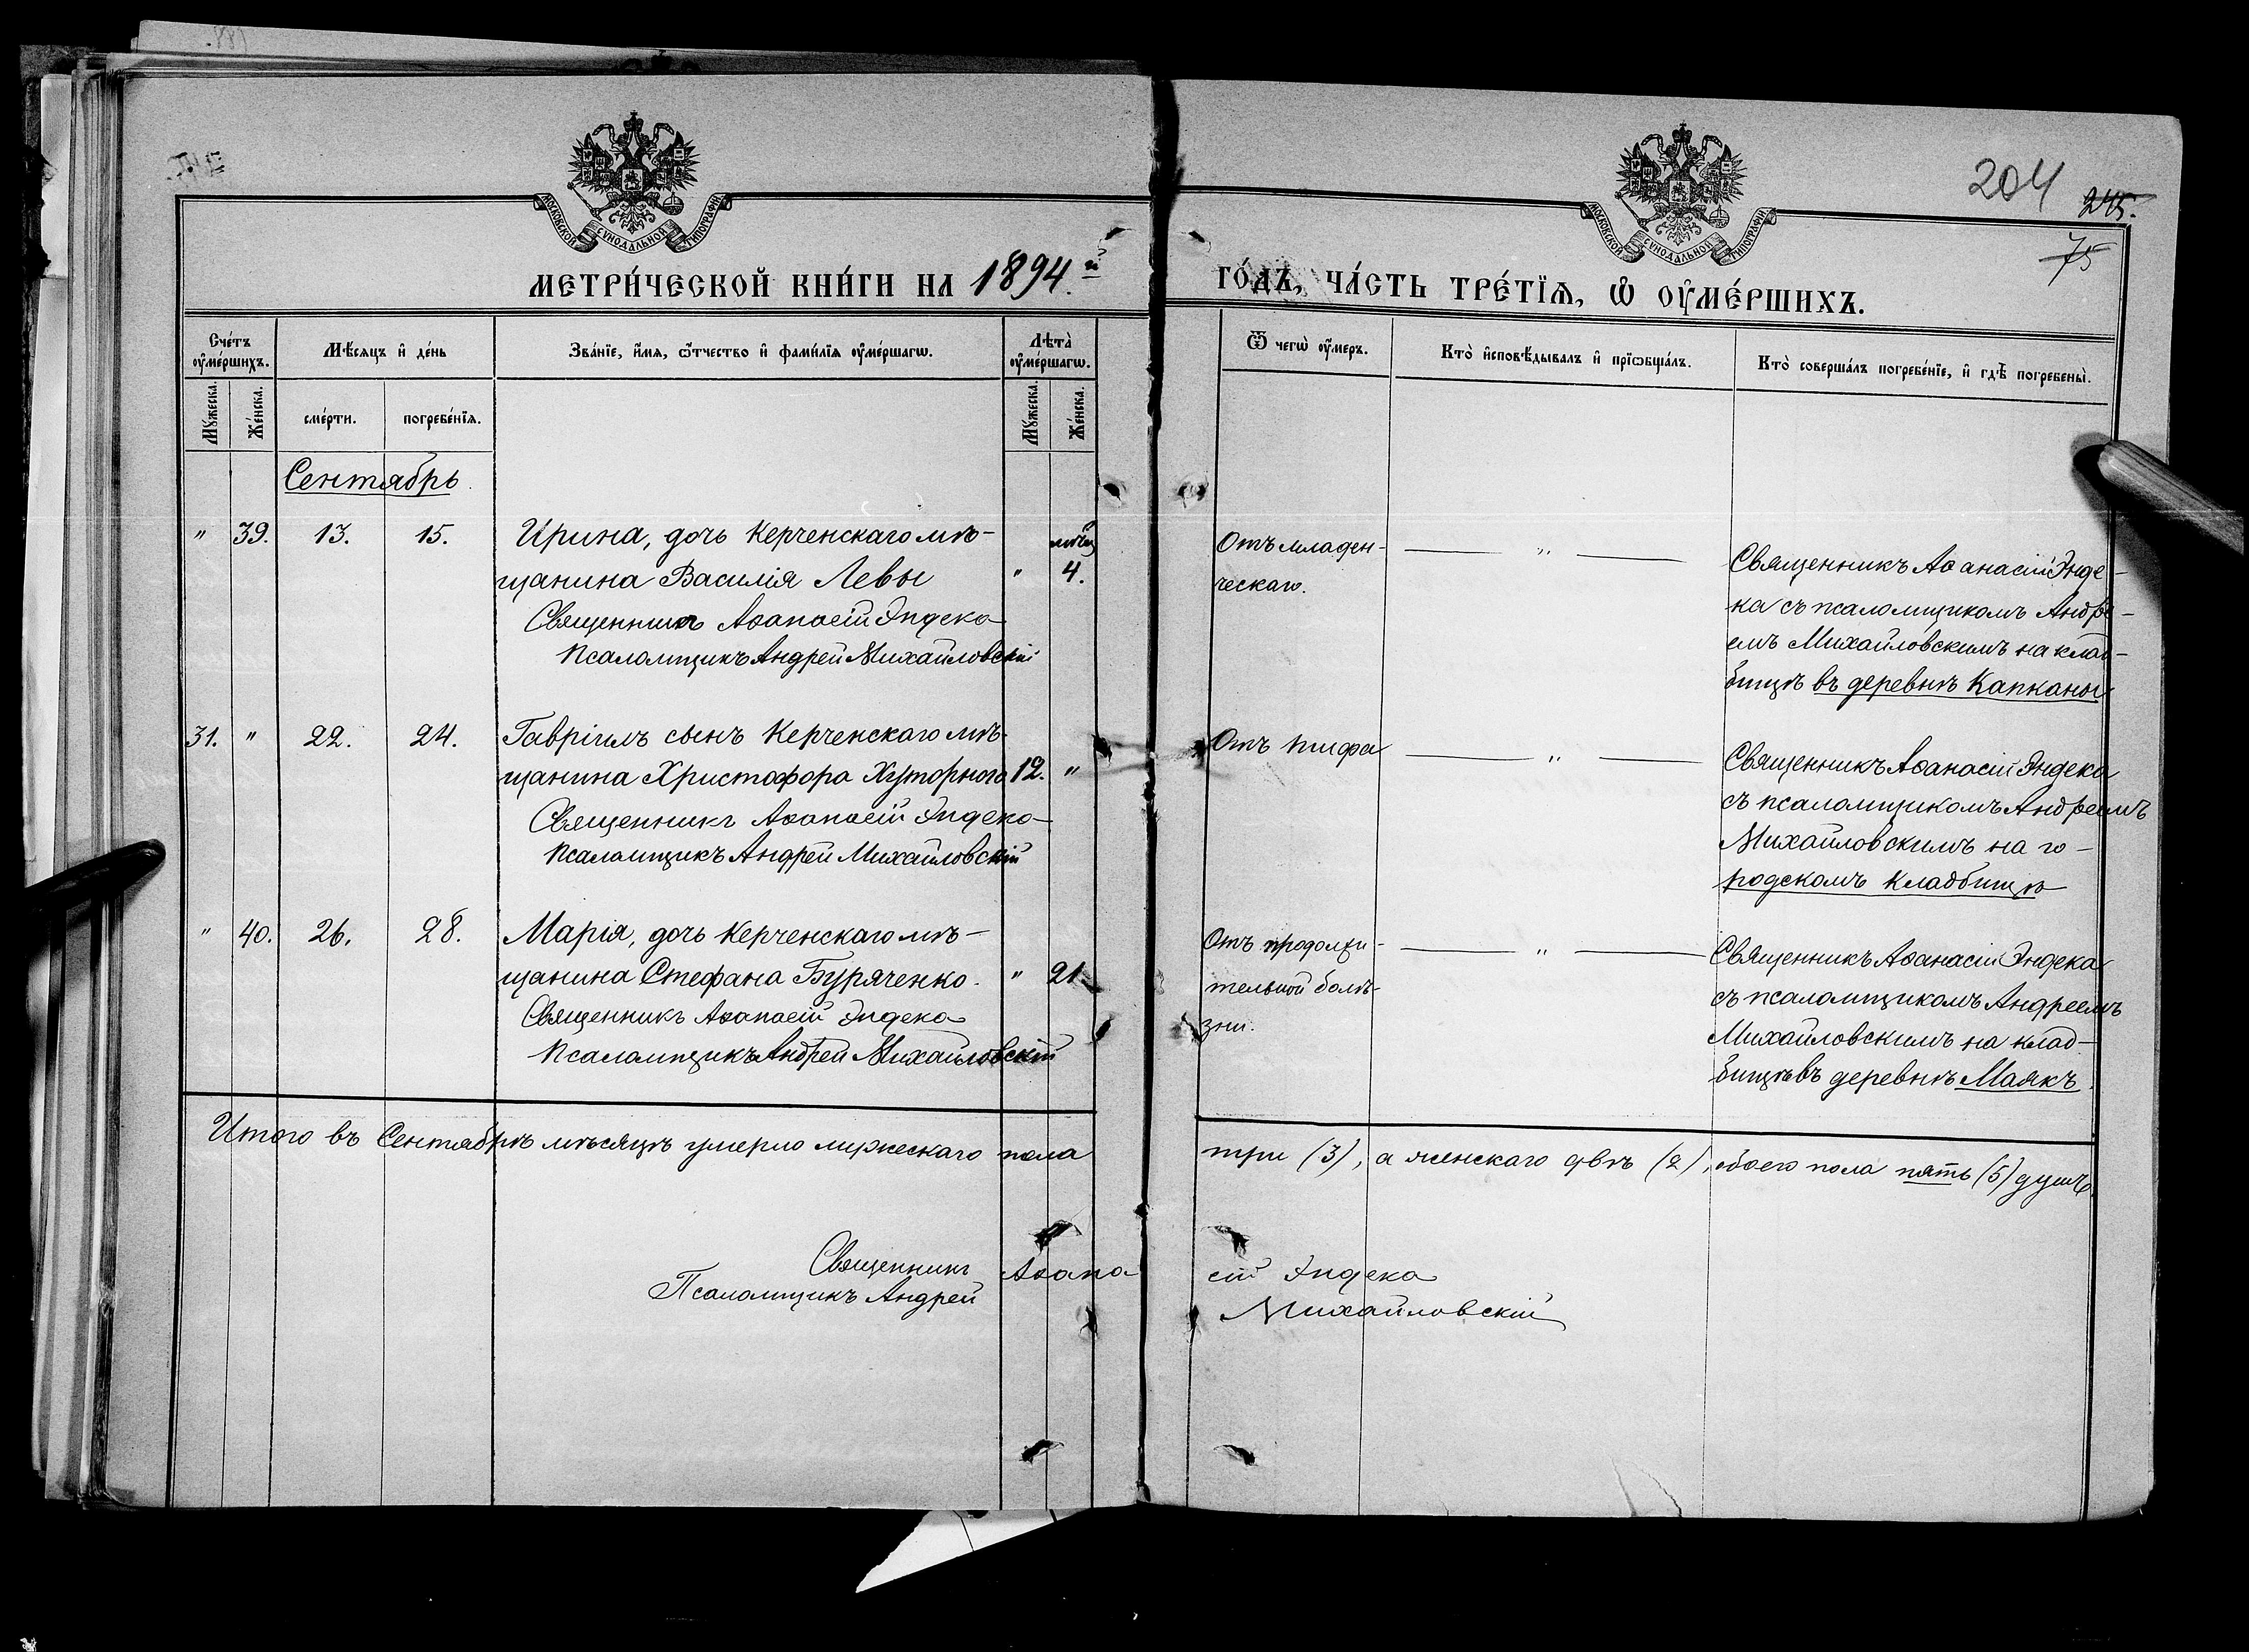 204 245.
75
МОСКОВСКОЙ СУНОДАЛЬНОЙ ТИПОГРАФИИ
МОСКОВСКОЙ СУНОДАЛЬНОЙ ТИПОГРАФИИ
МЕТРИ́ЧЕСКОЙ КНИ́ГИ НА 1894.й ГО́ДЪ, ЧА́СТЬ ТРЕ́ТЇѦ, Ѡ҆ ОУ҆МЕ́РШИХЪ.
Сче́тъ оу҆ме́ршихъ.
Мѣ́сяцъ и҆ де́нь
Зва́нїе, и҆́мя, ѻ҆́тчество и҆ фами́лїя оу҆ме́ршагѡ.
Лѣта̀ оу҆ме́ршагѡ.
Ѿ чегѡ̀ оу҆́меръ.
Кто̀ и҆сповѣ́дывалъ и҆ прїѡбща́лъ.
Кто̀ соверша́лъ погребе́нїе, и҆ гдѣ̀ погребены̀.
Мꙋ́жеска. Же́нска. сме́рти. погребе́нїя. Мꙋ́жеска. Же́нска.
Сентябрь.
" 39. 13. 15. Ирина, дочь Керченскаго мѣ-
щанина Василія Левы " мѣсц 4.
Священникъ Аѳанасій Эндека
Псаломщикъ Андрей Михайловскій
Отъ младен-
ческаго.
"
Священникъ Аѳанасій Энде-
ка съ псаломщикомъ Андре-
емъ Михайловскимъ на клад-
бищѣ въ деревнѣ Капканы
31. " 22. 24. Гавріилъ сынъ Керченскаго мѣ-
щанина Христофора Хуторного 12. "
Священникъ Аѳанасій Эндека
Псаломщикъ Андрей Михайловскій
Отъ тифа
"
Священникъ Аѳанасій Эндека
съ псаломщикомъ Андреемъ
Михайловскимъ на го-
родскомъ кладбищѣ
" 40. 26. 28. Марія, дочь Керченскаго мѣ-
щанина Стефана Буряченко. " 21.
Священникъ Аѳанасій Эндека
Псаломщикъ Андрей Михайловскій
Отъ продолжи-
тельной болѣ-
зни.
"
Священникъ Аѳанасій Эндека
съ псаломщикомъ Андреемъ
Михайловскимъ на клад-
бищѣ въ деревнѣ Маякъ.
Итого въ Сентябрѣ мѣсяцѣ умерло мужескаго пола три (3), а женскаго двѣ (2), обоего пола пять (5) душъ.
Священникъ Аѳанасій Эндека
Псаломщикъ Андрей Михайловскій